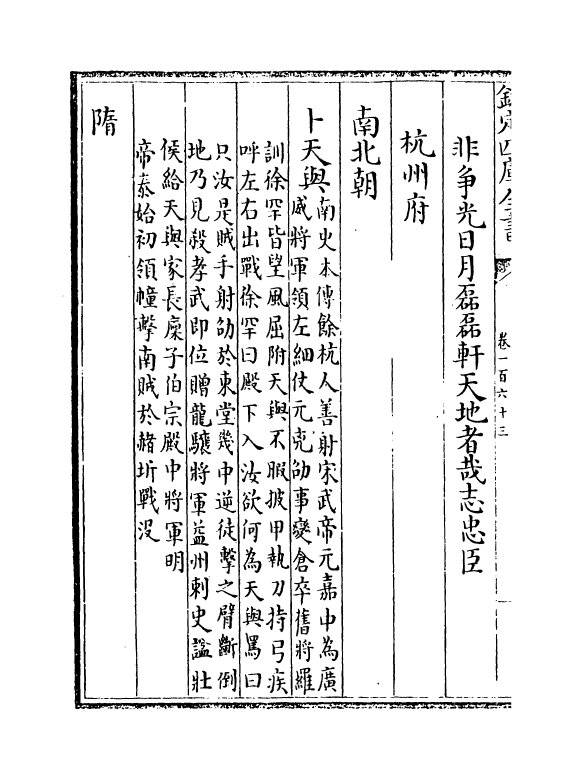 欽定四庫全書
卷一百六十三
非争光日月磊磊軒天地者哉志忠臣
杭州府
南北朝
卜天與南史本傳餘杭人善射宋武帝元嘉中為廣
威將軍領左細仗元兇劭事變倉卒舊將羅
訓徐罕皆望風屈附天與不暇披甲執刀持弓疾
呼左右出戰徐罕曰殿下入汝欲何為天與罵曰
只汝是賊手射劭於東堂幾中逆徒擊之臂斷倒
地乃見殺孝武即位贈龍驤將軍益州刺史諡壯
侯給天與家長廩子伯宗殿中將軍明
帝泰始初領幢擊南賊於赭圻戰没
隋